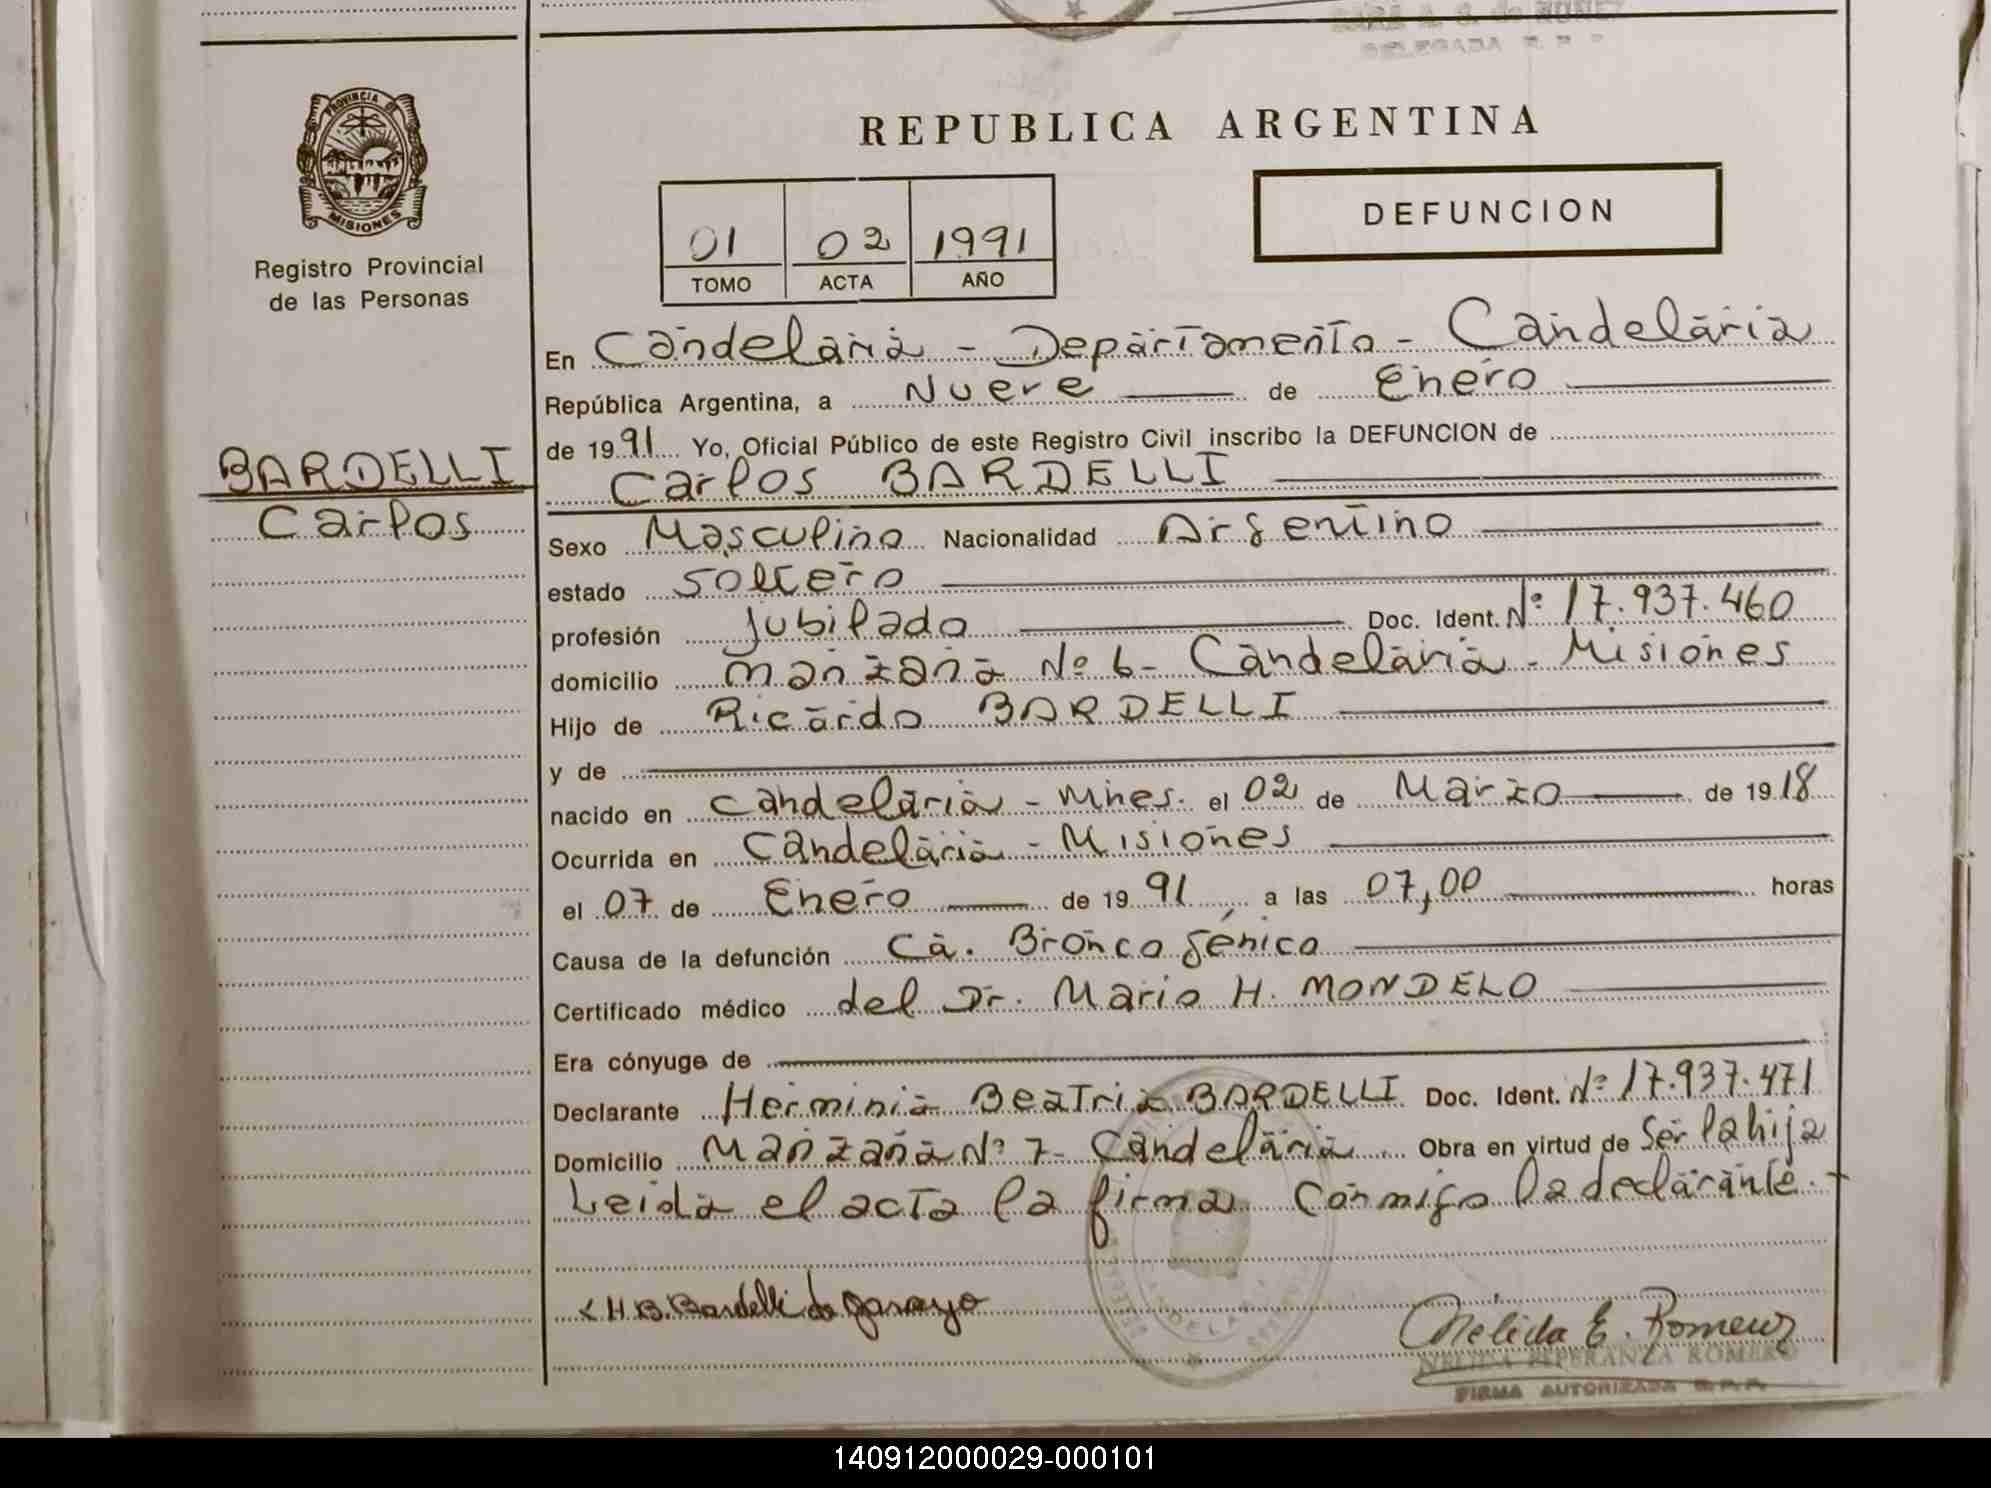 SARA A. S. de NUÑEZ
DELEGADA R. P. P.
PROVINCIA DE
MISIONES
Registro Provincial
de las Personas
REPUBLICA ARGENTINA
01 02 1991
TOMO ACTA AÑO
DEFUNCION
BARDELLI
Carlos
En Candelaria - Departamento - Candelaria
República Argentina, a Nueve de Enero
de 1991 Yo, Oficial Público de este Registro Civil inscribo la DEFUNCION de
Carlos BARDELLI
Sexo Masculino Nacionalidad Argentino
estado soltero
profesión Jubilado Doc. Ident. Nº 17.937.460
domicilio manzana Nº 6 - Candelaria - Misiones
Hijo de Ricardo BARDELLI
y de
nacido en Candelaria - Mnes. el 02 de Marzo de 1918
Ocurrida en Candelaria - Misiones
el 07 de Enero de 1991 a las 07,00 horas
Causa de la defunción Ca. Broncogénico
Certificado médico del Dr. Mario H. MONDELO
Era cónyuge de
Declarante Herminia Beatriz BARDELLI Doc. Ident. Nº 17.937.471
Domicilio Manzana Nº 7 - Candelaria Obra en virtud de Ser la hija
Leida el acta la firma conmigo la declarante.-
H.B. Bardelli de Garayo
Nélida E. Romero
NELIDA ESPERANZA ROMERO
FIRMA AUTORIZADA R.P.P.
140912000029-000101